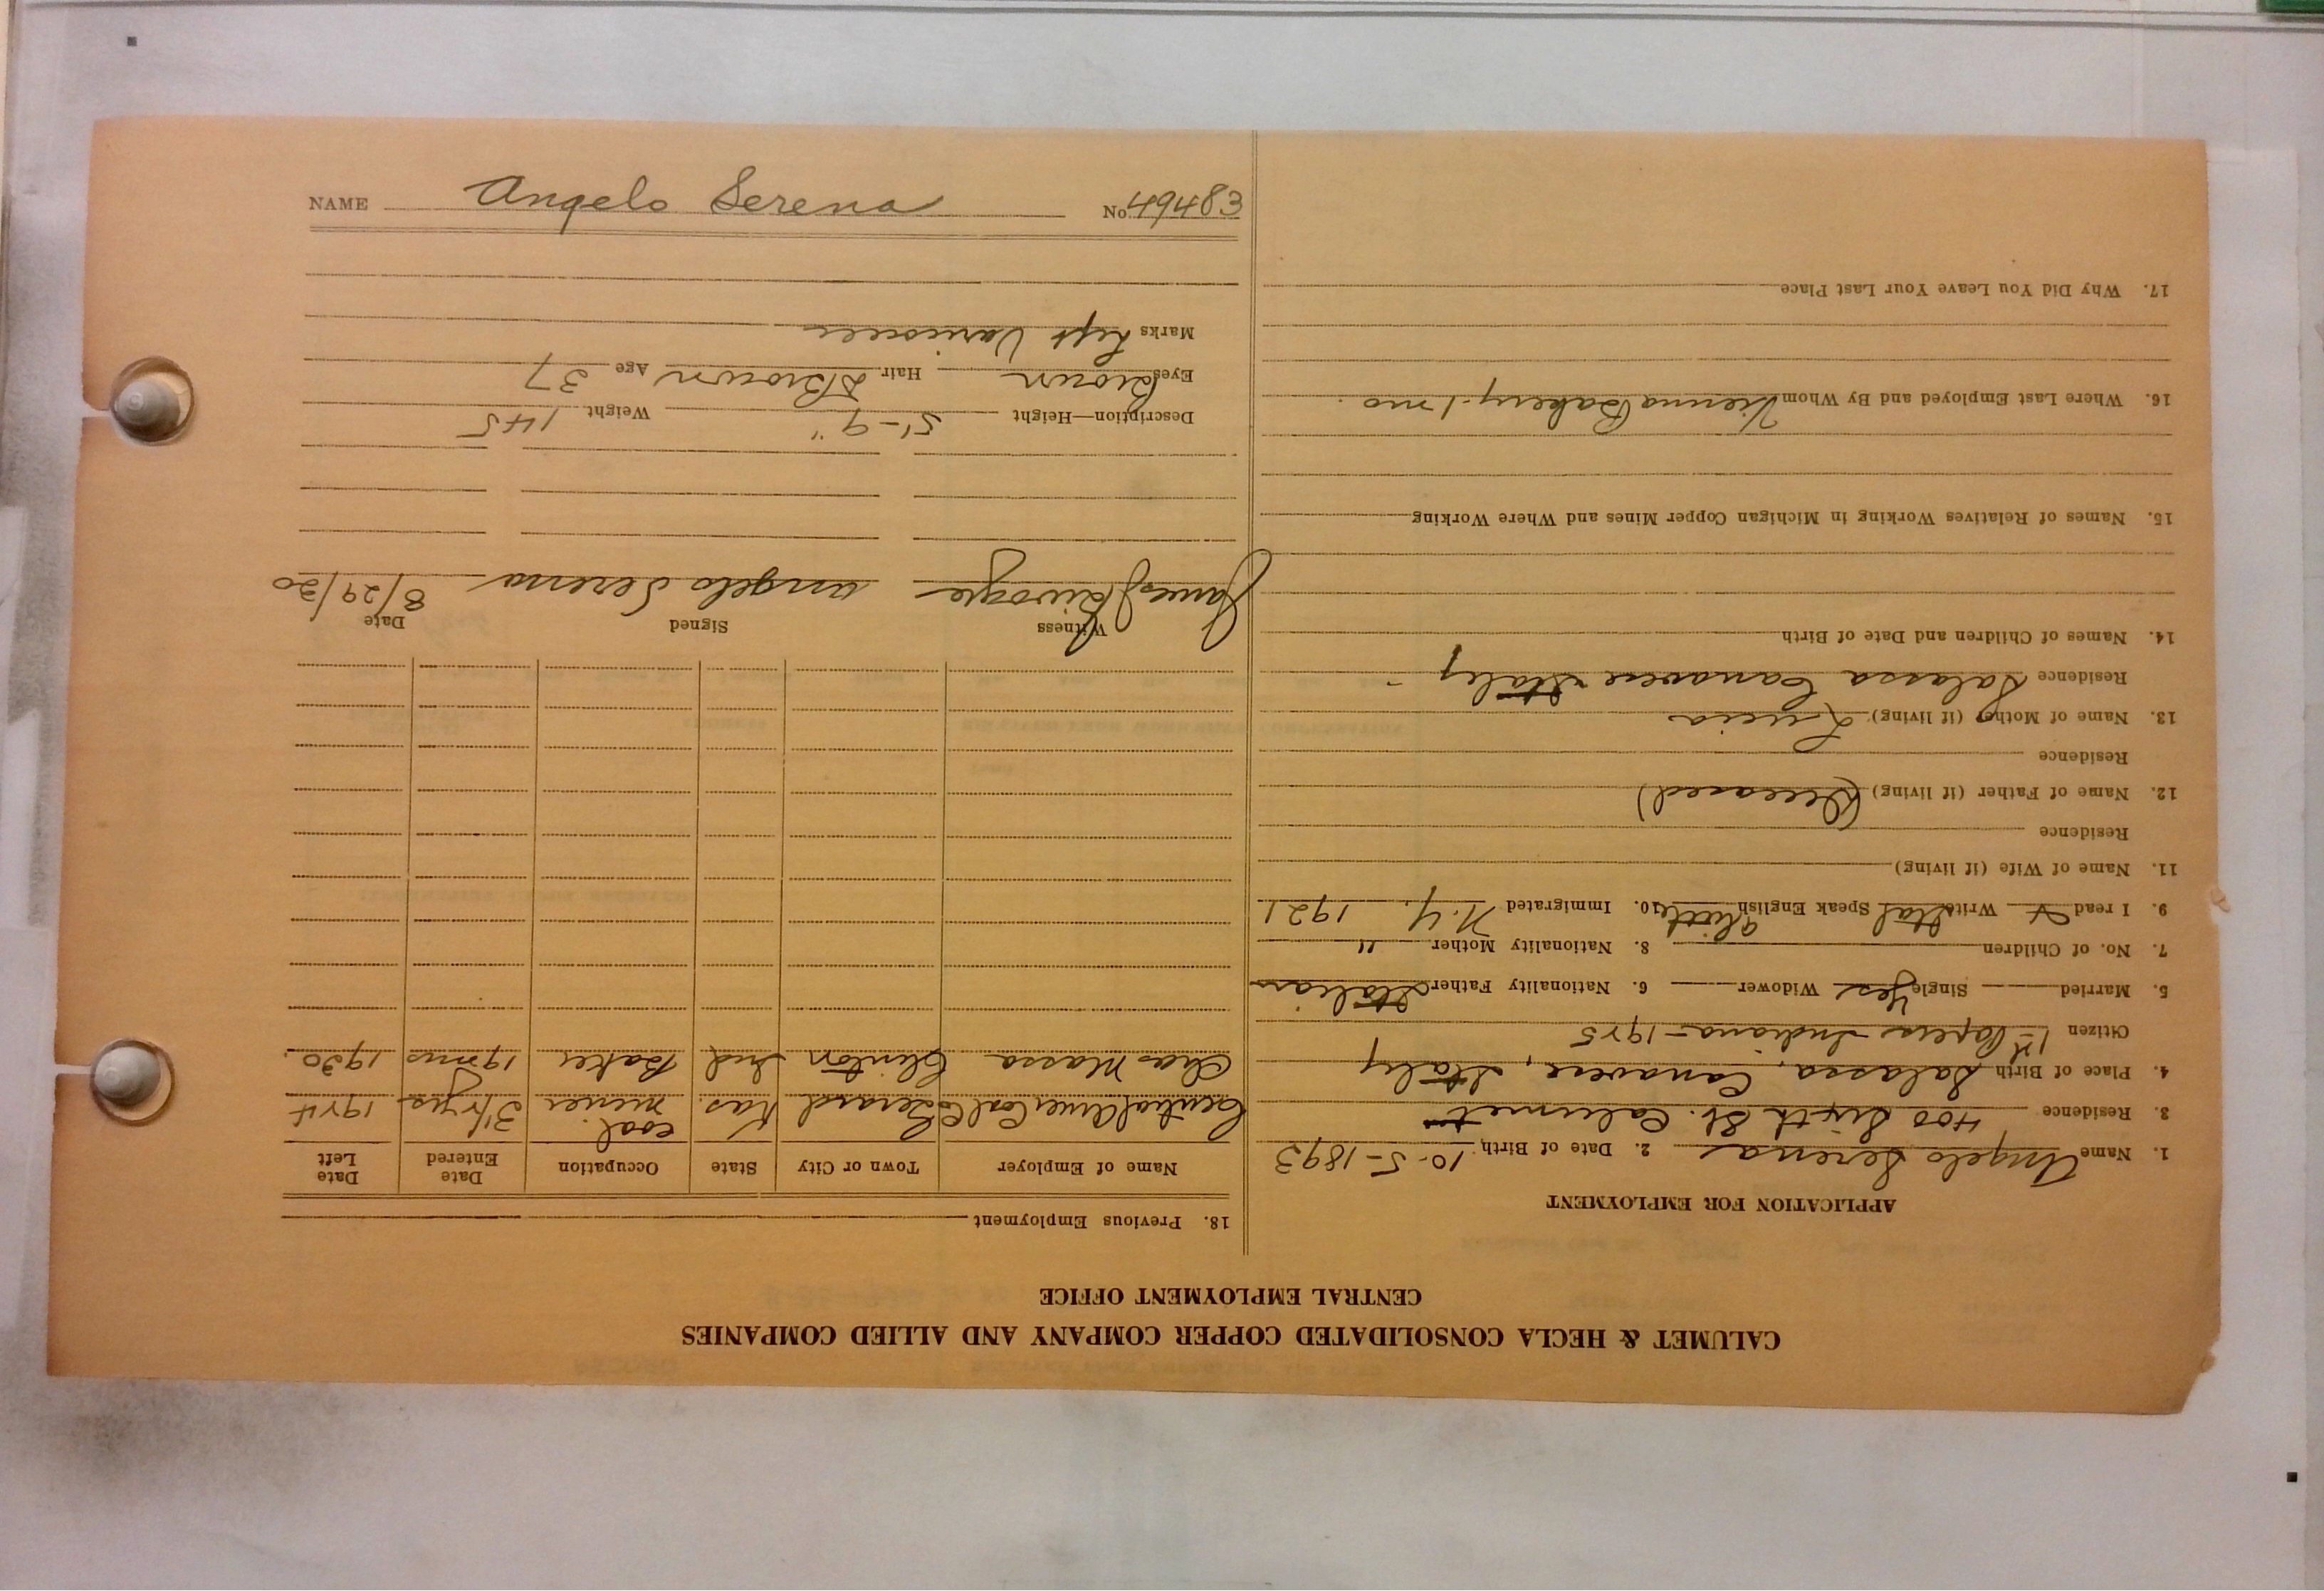 CALUMET & HECLA CONSOLIDATED COPPER COMPANY AND ALLIED COMPANIES
CENTRAL EMPLOYMENT OFFICE
APPLICATION FOR EMPLOYMENT
1. Name Angelo Serena 2. Date of Birth 10-5-1893
3. Residence 400 Sixth St. Calumet
4. Place of Birth Salassa, Canavere, Italy
Citizen 1st Papers Indiana - 1925
5. Married Single Yes Widower 6. Nationality Father Italian
7. No. of Children 8. Nationality Mother "
9. I read & Write Ital Speak English little 10. Immigrated N.Y. 1921
11. Name of Wife (if living)
Residence
12. Name of Father (if living) (Deceased)
Residence
13. Name of Mother (if living) Lucia
Residence Salassa Canavere Italy
14. Names of Children and Date of Birth
15. Names of Relatives Working in Michigan Copper Mines and Where Working
16. Where Last Employed and By Whom Vienna Bakery - 1 mo.
17. Why Did You Leave Your Last Place
18. Previous Employment
Name of Employer Town or City State Occupation Date Entered Date Left
Central Coal Co Gerard Kas. coal miner 3½ yrs 1924
Chas Massa Clinton Ind Baker 19 mos 1930.
Witness Signed Date
James Angelo Serena 8/29/30
Description—Height 5'-9" Weight 145
Eyes Brown Hair D Brown Age 37
Marks Left Varicocele
NAME Angelo Serena No. 49483